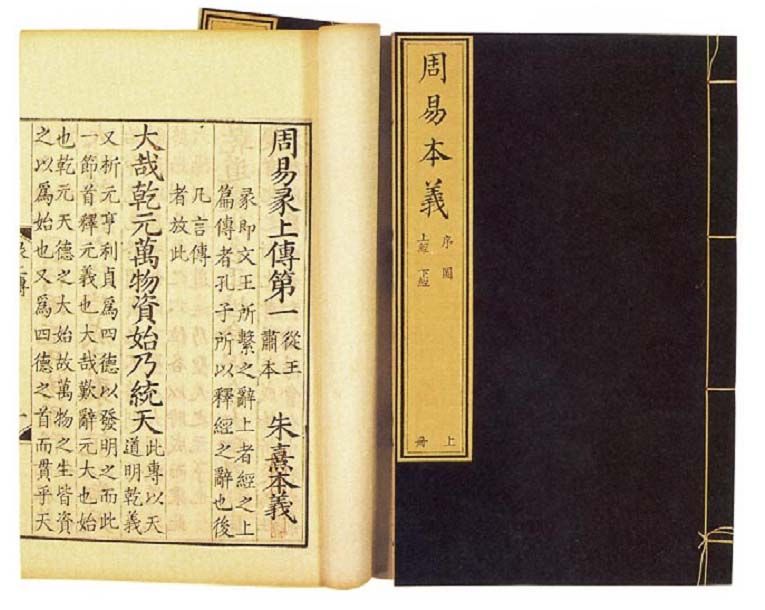 周易本義
序圖
上經 下經
上冊
周易彖上傳第一 從王
肅本 朱熹本義
彖即文王所繫之辭上者經之上
篇傳者孔子所以釋經之辭也後
凡言傳
者放此
大哉乾元萬物資始乃統天 此專以天
道明乾義
又析元亨利貞爲四德以發明之而此
一節首釋元義也大哉歎辭元大也始
也乾元天德之大始故萬物之生皆資
之以爲始也又爲四德之首而貫乎天